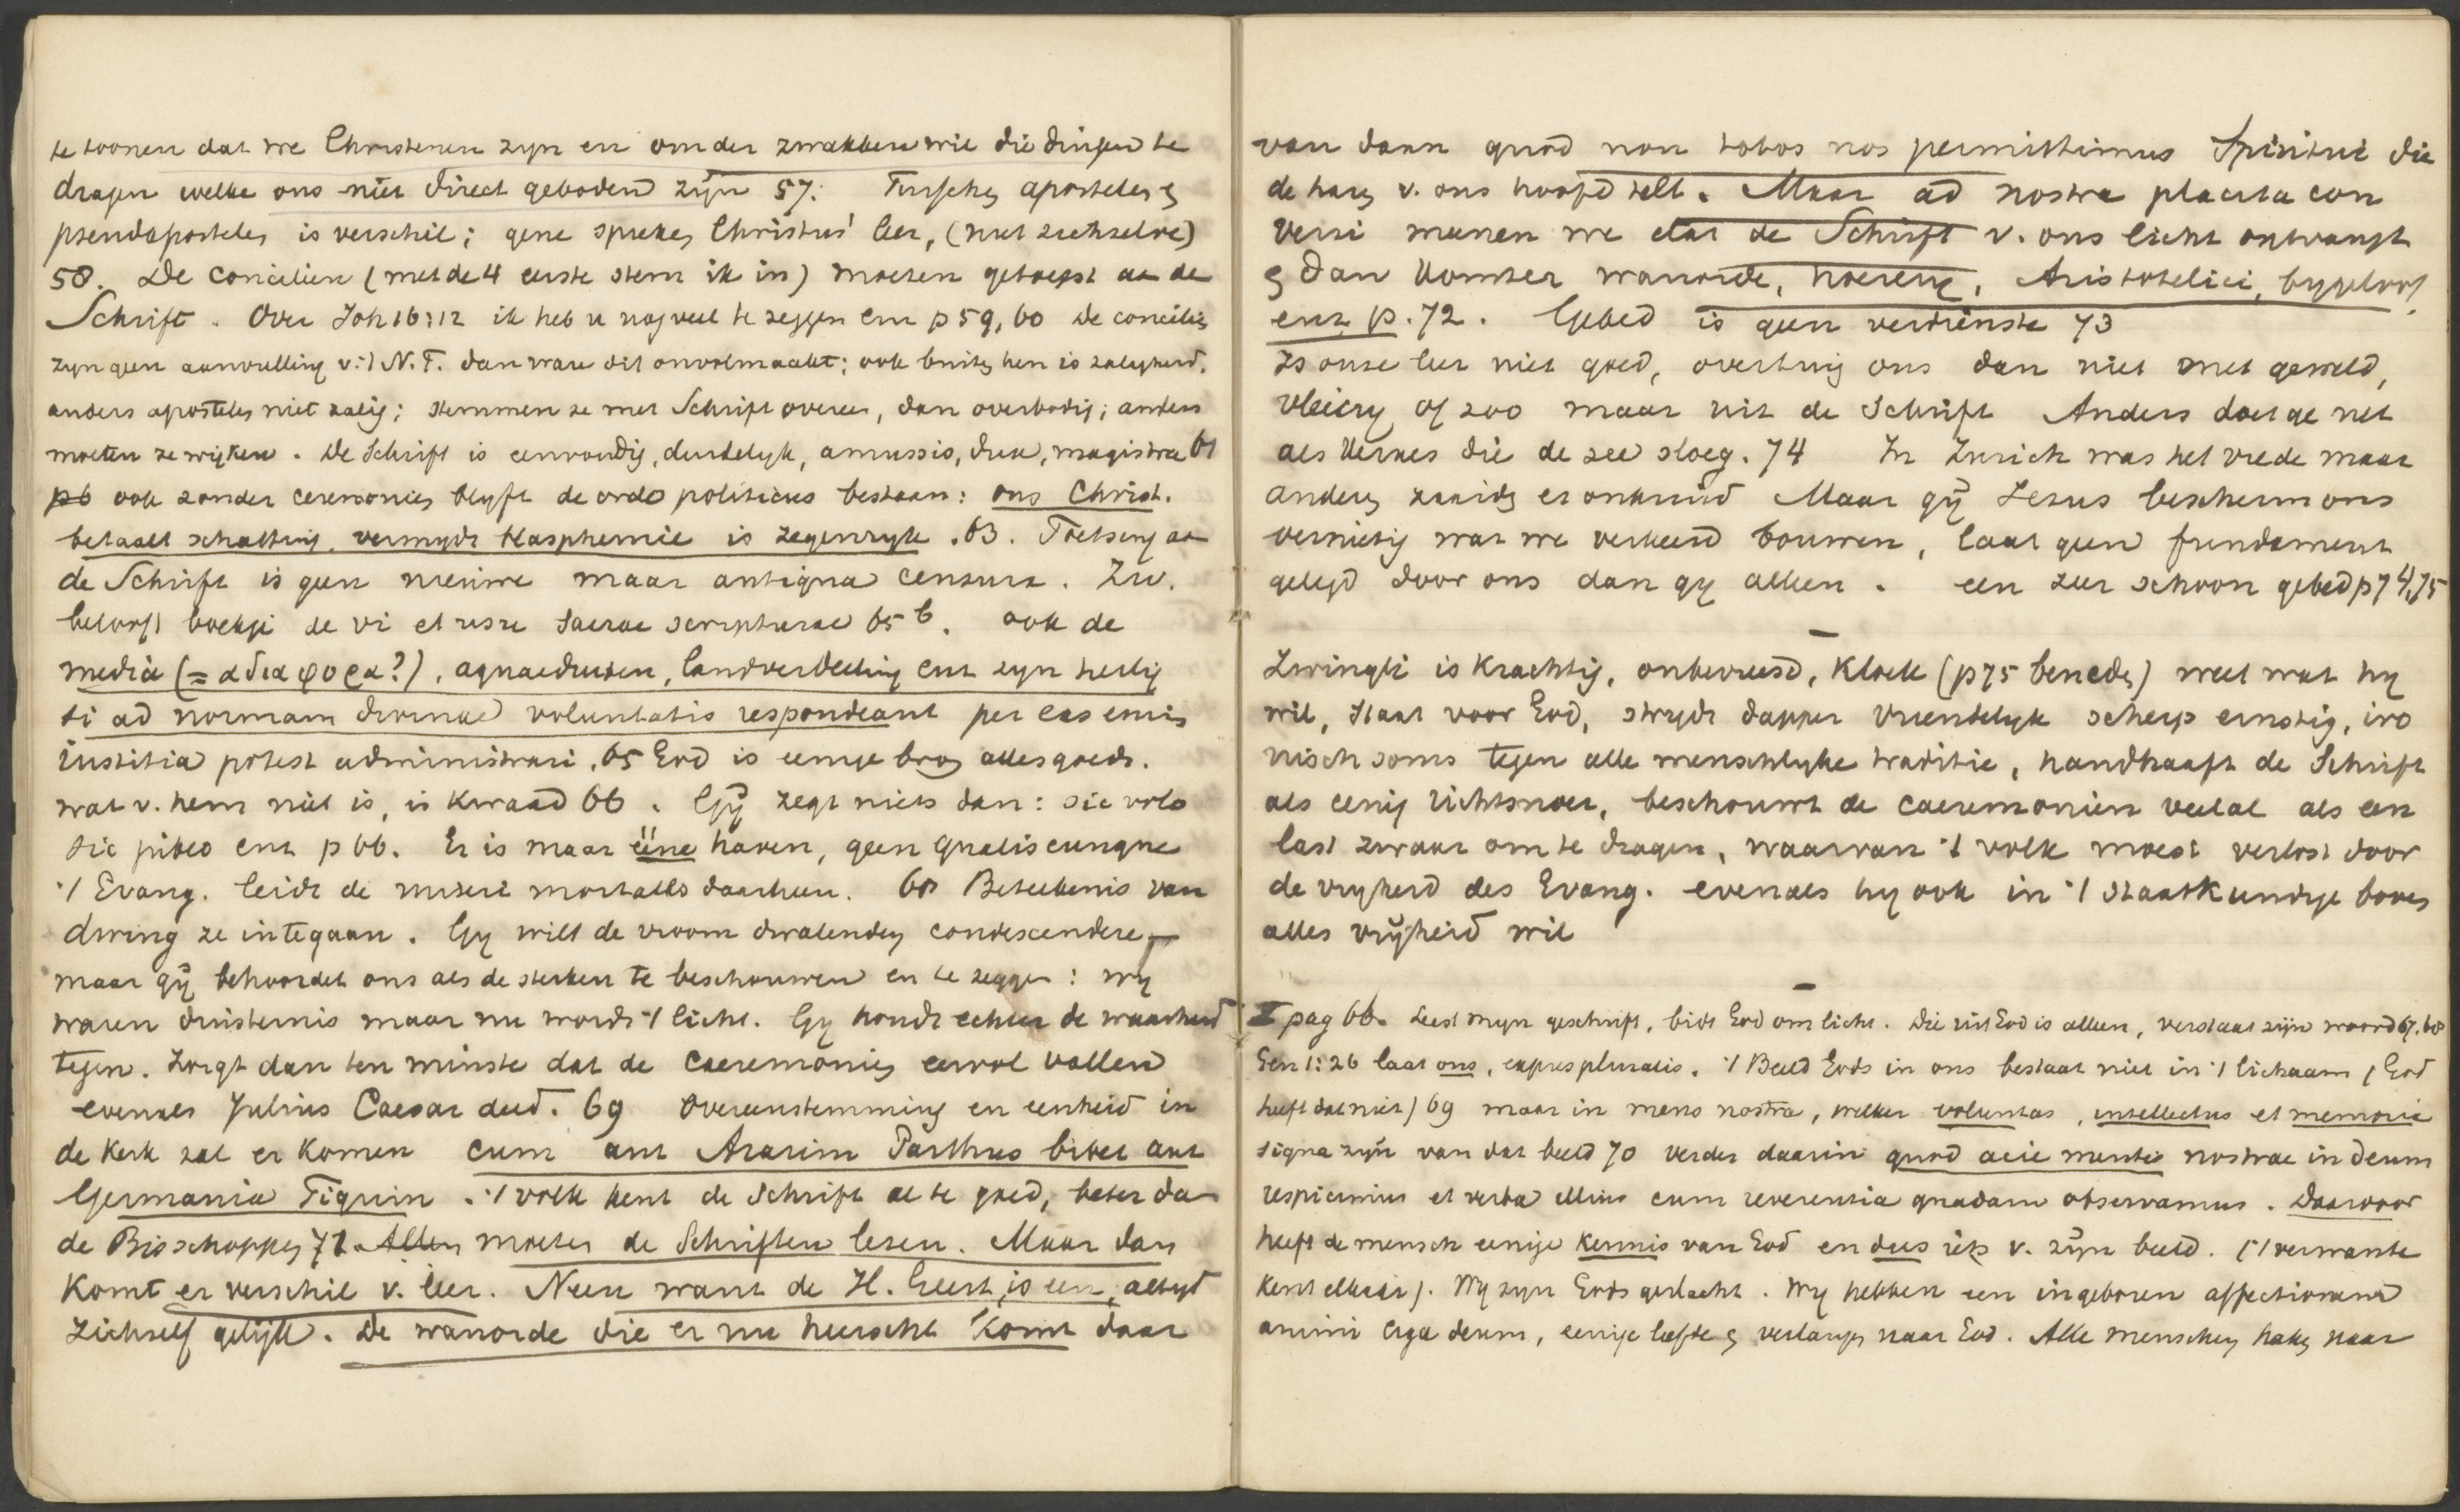 te toonen dat we Christenen zyn en om der zwakken wil die dingen te
dragen welke ons niet direct geboden zijn 57. Tusschen apostelen en
pseudapostelen is verschil; gene spreken Christus' leer, (niet zichzelve)
58. De conciliën (met de 4 eerste stem ik in) moeten getoetst aan de
Schrift. Over Joh 16:12 ik heb u nog veel te zeggen enz p 59, 60 De conciliën
zyn geen aanvulling v. 't N.T. dan ware dit onvolmaakt; ook buiten hen is zaligheid,
anders apostelen niet zalig; stemmen ze met Schrift overeen, dan overbodig; anders
moeten ze wijken. De Schrift is eenvoudig, duidelyk, amussis, dux, magistra 61
ook zonder ceremoniën blyft de ordo politicus bestaan: ons Christ.
betaalt schatting, vermydt blasphemie is zegenryk. 63. Toetsing aan
de Schrift is geen nieuwe maar antiqua censura. Zw.
belooft boekje de vi et usu sacrae scripturae 65 b. ook de
media (= αδιαφορα?), aquaeducten, landverdeeling enz zyn heilig
si ad normam divinae voluntatis respondeant per eas enim
iustitia potest administrari. 65 God is eenige bron alles goeds.
wat v. hem niet is, is kwaad 66. Gÿ zegt niets dan: sic volo
sic jubeo enz p 66. Er is maar ééne haven, geen qualiscunque
't Evang. leidt de miseri mortales daarheen. 68 Beteekenis van
dwing ze in te gaan. Gy wilt de vroom dwalenden condescendere
maar gÿ behoordet ons als de sterken te beschouwen en te zeggen: wy
waren duisternis maar nu wordt 't licht. Gy houdt echter de waarheid
tegen. Zorgt dan ten minste dat de caeremoniën eervol vallen
evenals Julius Caesar deed. 69 Overeenstemming en eenheid in
de Kerk zal er komen cum aut Ararim Parthus bibet aut
Germania Tigrim. 't volk kent de Schrift al te goed, beter dan
de Bisschoppen 71. Allen moeten de Schriften lezen. Maar dan
komt er verschil v. leer. Neen want de H. Geest, is een, altyd
zichzelf gelijk. De wanorde die er nu heerscht komt daar
van daan quod non totos nos permittimus Spiritui die
de haren v. ons hoofd telt. Maar ad nostra placita con
versi meenen we dat de Schrift v. ons licht ontvangt
en dan komt er wanorde, hoerery, Aristotelici, bygeloof,
enz p. 72. Gebed is geen verdienste 73
Is onze leer niet goed, overtuig ons dan niet met geweld,
vleiery of zoo maar uit de Schrift Anders doet ge net
als Xerxes die de zee sloeg. 74 In Zurich was het vrede maar
anderen zaaiden er onkruid Maar gÿ Jezus bescherm ons
vernietig wat we verkeerd bouwen, laat geen fundament
gelegd door ons dan gy alleen. een zeer schoon gebed p 74, 75
Zwingli is krachtig, onbevreesd, kloek (p 75 beneden) weet wat hy
wil, staat voor God, strydt dapper vriendelyk scherp ernstig, iro
nisch soms tegen alle menschlyke traditie, handhaaft de Schrift
als eenig richtsnoer, beschouwt de caeremoniën veelal als een
last zwaar om te dragen, waarvan 't volk moest verlost door
de vryheid des Evang. evenals hy ook in 't staatkundige boven
alles vrÿheid wil
I pag 66. Leest myn geschrift, bidt God om licht. Die uit God is alleen, verstaat zijn woord 67. 68
Gen 1:26 laat ons, expres pluralis. 't Beeld Gods in ons bestaat niet in 't lichaam (God
heeft dat niet) 69 maar in mens nostra, welker voluntas, intellectus et memoria
signa zijn van dat beeld 70 verder daarin quod acie mentis nostrae in deum
respicimus et verba illius cum reverentia quadam observamus. Daarvoor
heeft de mensch eenige kennis van God en dus iets v. zijn beeld. ('t verwante
kent elkaar). Wy zyn Gods geslacht. Wy hebben een ingeboren affectionem
animi erga deum, eenige liefde en verlangen naar God. Alle menschen haken naar